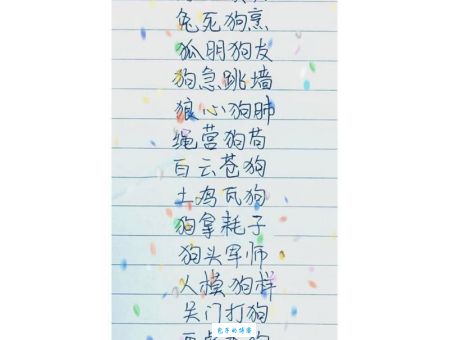 兔死狗烹
狐朋狗友
狗急跳墙
狼心狗肺
绳营狗苟
白云苍狗
土鸡瓦狗
狗拿耗子
狗头军师
人模狗样
关门打狗
兔子的博客